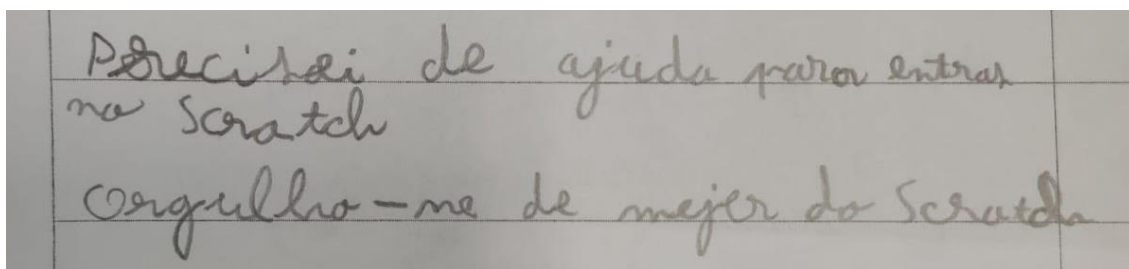 Precisei de ajuda para entrar
no Scratch
Orgulho-me de mejer do Scratch